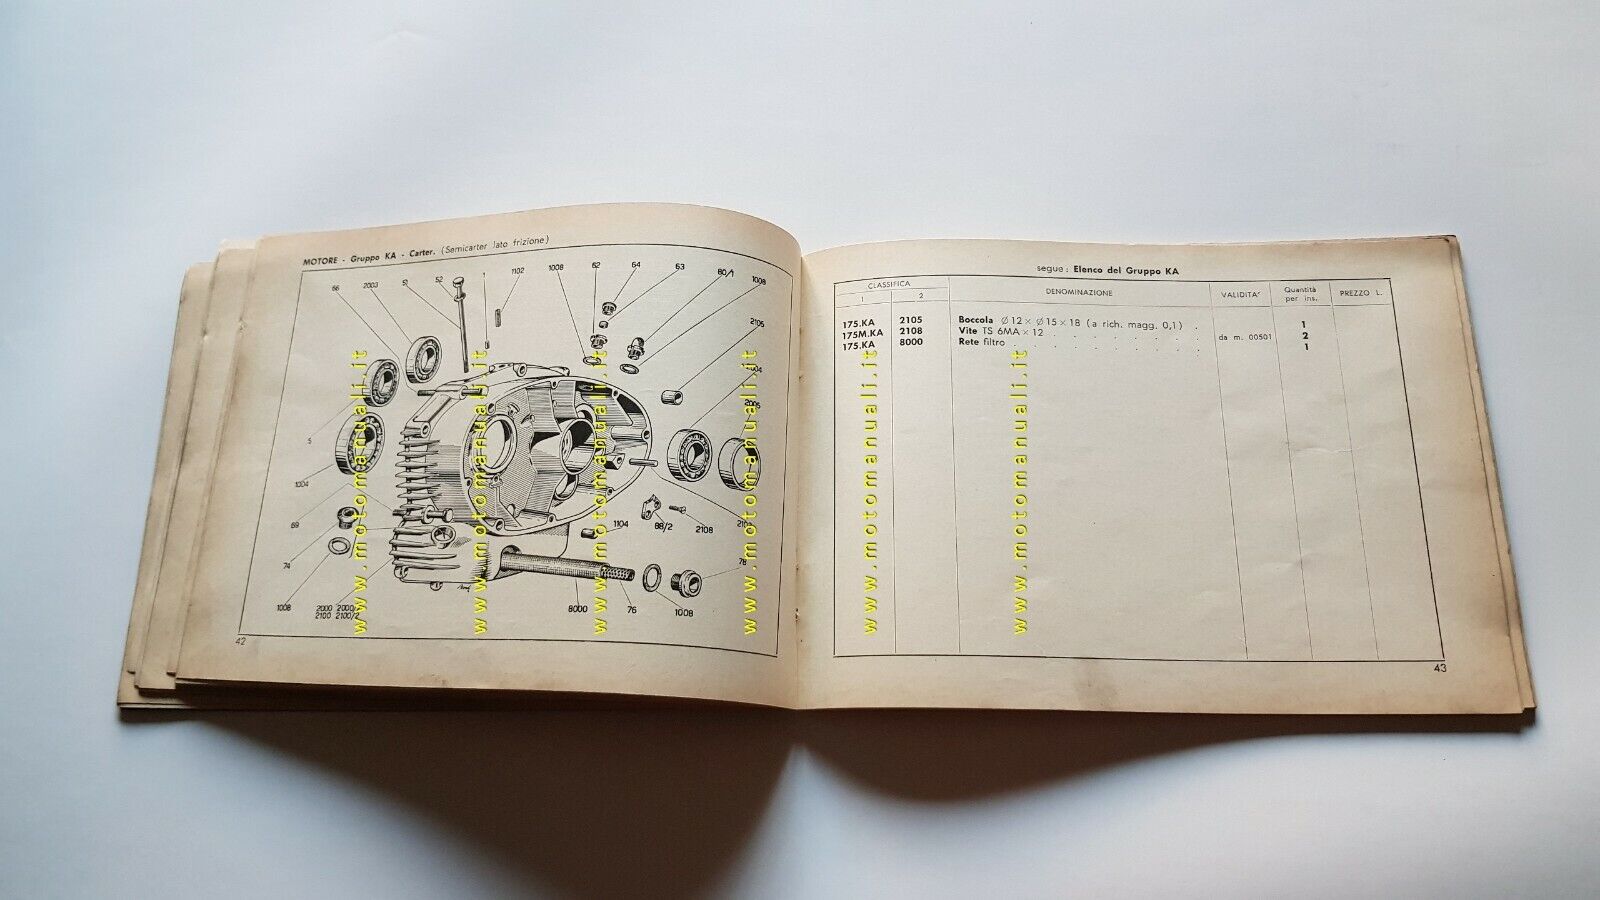 MOTORE - Gruppo KA - Carter. (Semicarter lato frizione)
66
2003
51
52
1102
1008
62
64
63
80/1
1008
2105
2005
5
1004
69
74
1008
2000
2100 2100/2
1104
88/2
2108
78
8000
76
1008
42
www.motomanuali.it
www.motomanuali.it
www.motomanuali.it
www.motomanuali.it
segue: Elenco del Gruppo KA
CLASSIFICA
1 2
DENOMINAZIONE
VALIDITA'
Quantità
per ins.
PREZZO L.
175.KA 2105 Boccola Ø 12 × Ø 15 × 18 (a rich. magg. 0,1) . 1
175M.KA 2108 Vite TS 6MA × 12 . . . . . . . . da m. 00501 2
175.KA 8000 Rete filtro . . . . . . . . . . 1
www.motomanuali.it
www.motomanuali.it
43